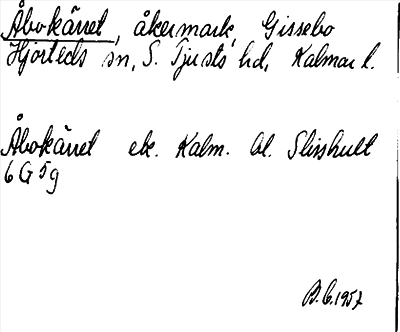 Åbokärret, åkermark, Gissebo
Hjorteds sn, S. Tjusts hd, Kalmar l.
Åbokärret ek. Kalm. bl. Slisshult
6 G 5 g
B. C. 1957